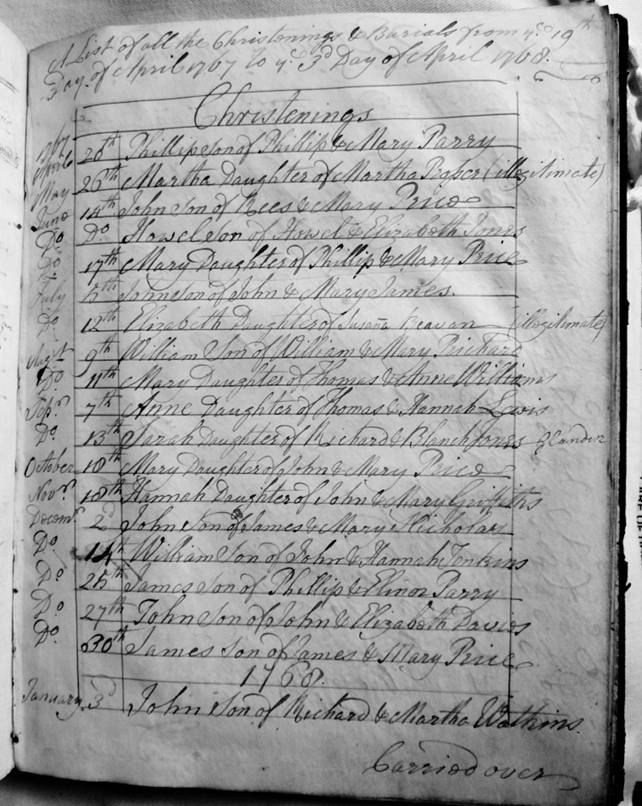 A List of all the Christenings & Burials from ye 19th
Day of April 1767 to ye 3d Day of April 1768.
Christenings
1767
April 20th Phillip son of Phillip & Mary Parry
26th Martha Daughter of Martha Proper (illegitimate)
May
June 14th John Son of Rees & Mary Price
Do Do Howel Son of Howel & Elizabeth Jones
Do 17th Mary Daughter of Phillip & Mary Price
July 5th John son of John & Mary James.
Do 12th Elizabeth Daughter of Susana Beavan (illegitimate)
August 9th William Son of William & Mary Prichard
Do 11th Mary Daughter of Thomas & Anne Williams
Sepr 7th Anne Daughter of Thomas & Hannah Lewis
Do 13th Sarah Daughter of Richard & Blanch Jones
October 18th Mary Daughter of John & Mary Price
Novr 18th Hannah Daughter of John & Mary Griffiths
Decemr 2d John Son of James & Mary Nicholas
Do 14th William Son of John & Hannah Jenkins
Do 25th James Son of Phillip & Elinor Parry
Do 27th John Son of John & Elizabeth Davies
Do 30th James Son of James & Mary Price
1768.
January 3d John Son of Richard & Martha Watkins.
Carried over